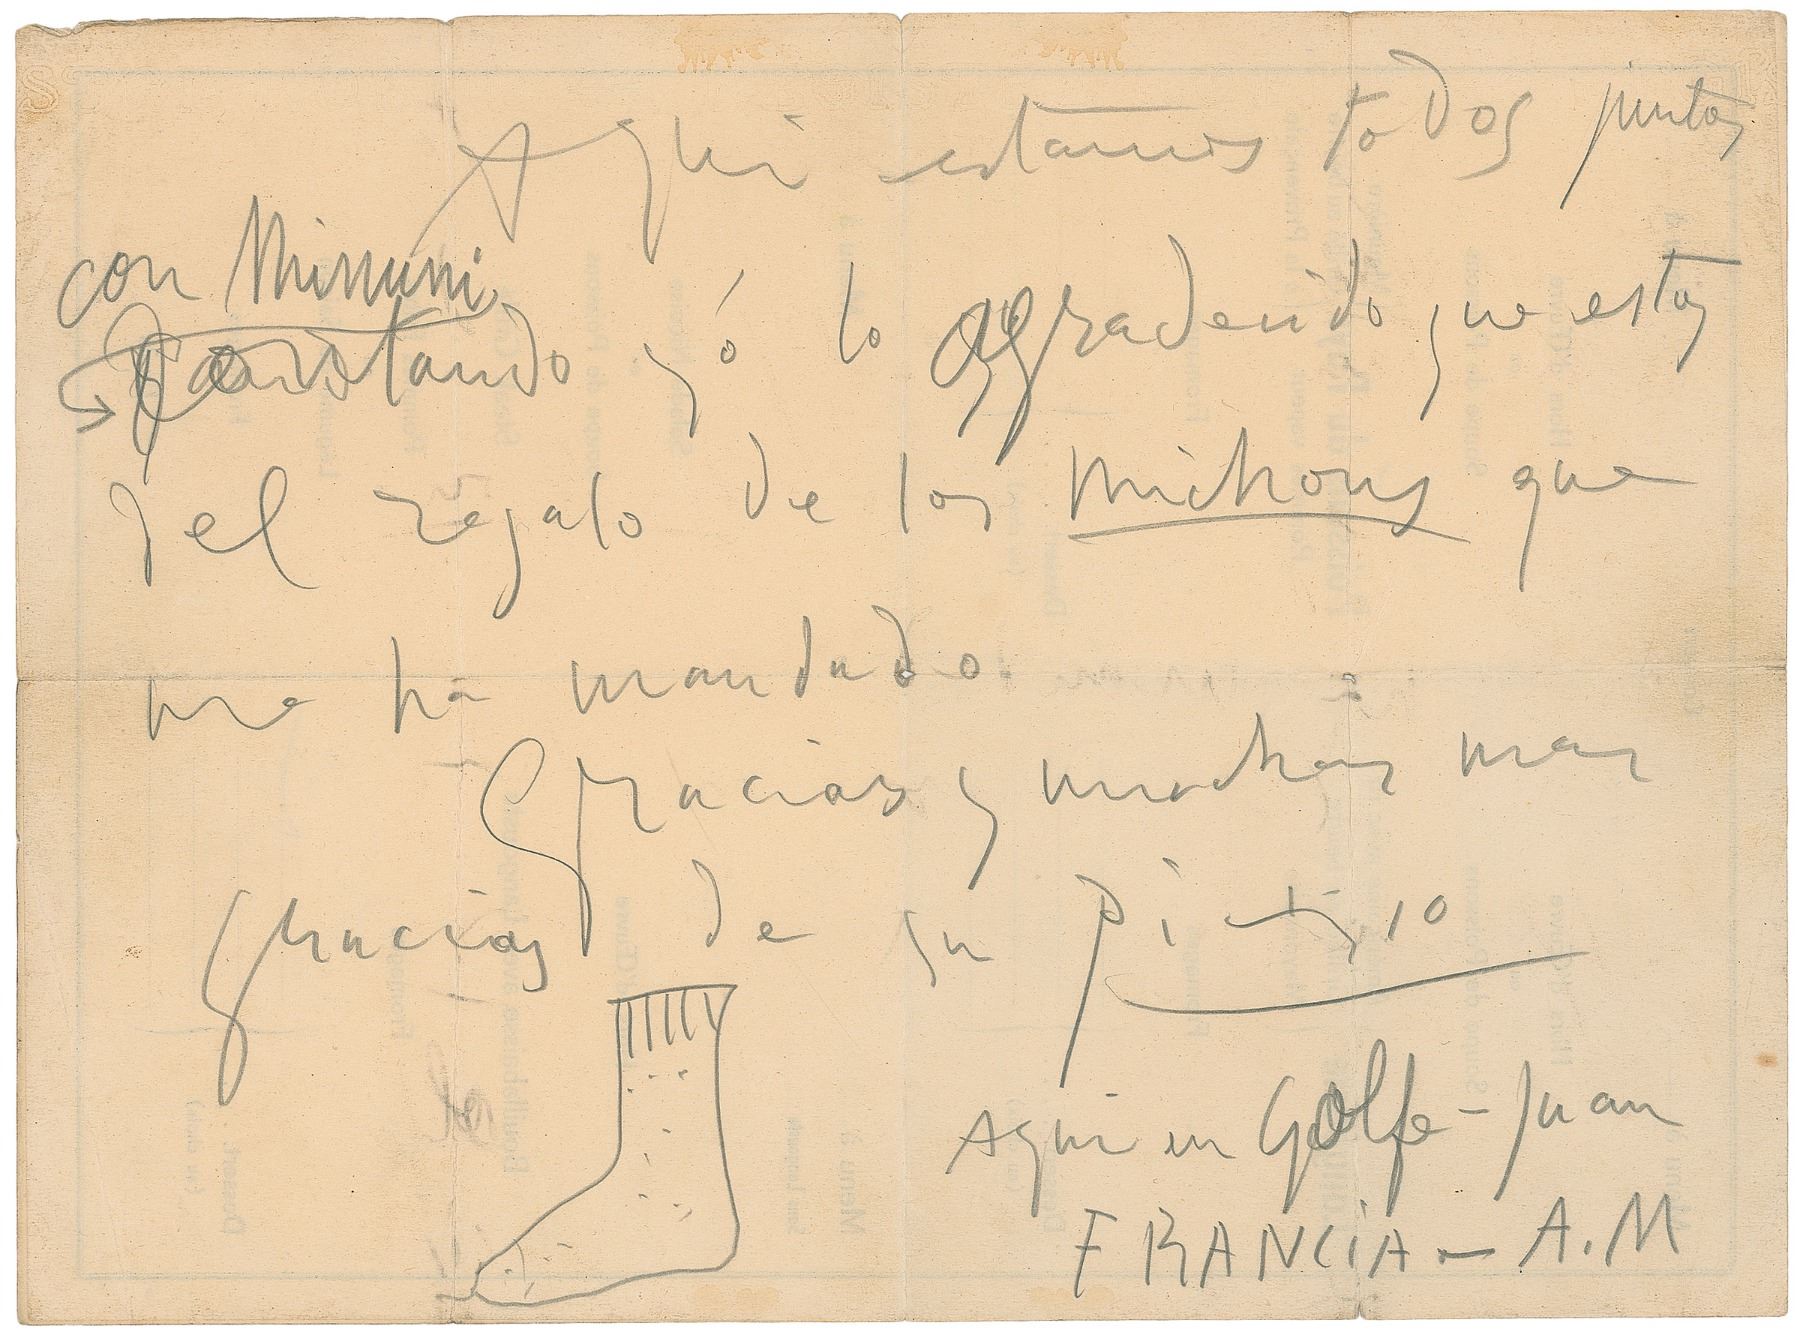 Aqui estamos todos juntos
con Minuni
contando yó lo aggradecido que estoy
del regalo de los michons que
me ha mandado.
Gracias y muchas mas
gracias de su Picasso
Aqui en Golfe-Juan
FRANCIA - A.M